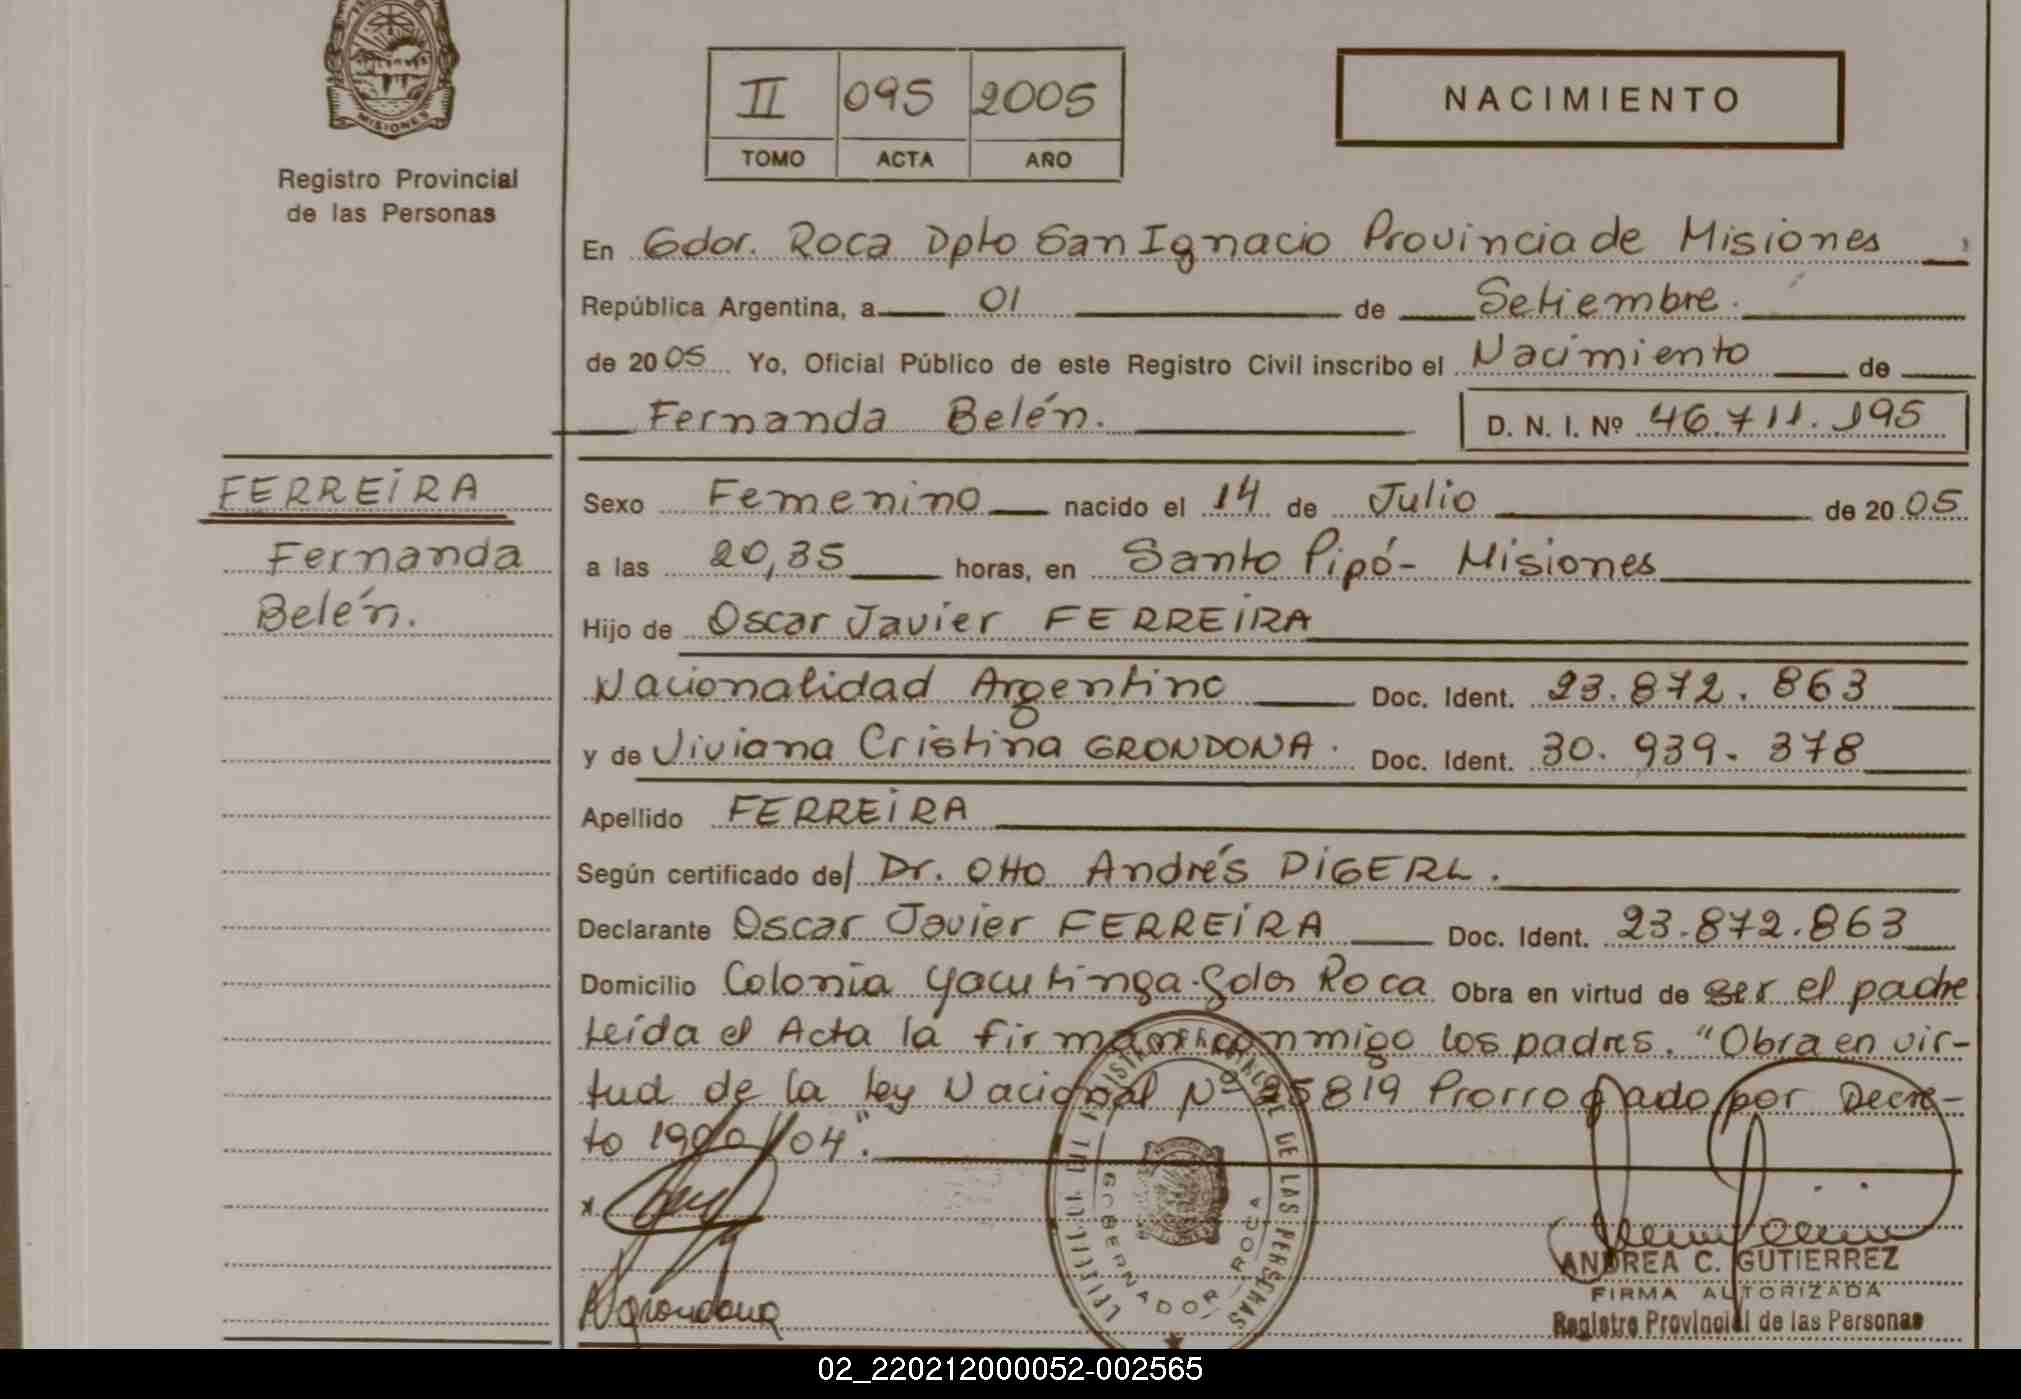 MISIONES
Registro Provincial
de las Personas
II 095 2005
TOMO ACTA AÑO
NACIMIENTO
En Gdor. Roca Dpto San Ignacio Provincia de Misiones
República Argentina, a 01 de Setiembre.
de 2005 Yo, Oficial Público de este Registro Civil inscribo el Nacimiento de
Fernanda Belén. D. N. I. Nº 46.711.195
FERREIRA
Fernanda
Belén.
Sexo Femenino nacido el 14 de Julio de 2005
a las 20,35 horas, en Santo Pipó- Misiones
Hijo de Oscar Javier FERREIRA
Nacionalidad Argentino Doc. Ident. 23.872.863
y de Viviana Cristina GRONDONA. Doc. Ident. 30.939.378
Apellido FERREIRA
Según certificado del Dr. Otto Andrés DIGERL.
Declarante Oscar Javier FERREIRA Doc. Ident. 23.872.863
Domicilio Colonia Yacutinga-Gdor Roca Obra en virtud de ser el padre
Leída el Acta la firman conmigo los padres. "Obra en vir-
tud de la Ley Nacional Nº 25819 Prorrogado por Decre-
to 1900/04".
x
GOBERNADOR ROCA
DE LAS PERSONAS
Grondona
ANDREA C. GUTIERREZ
FIRMA AUTORIZADA
Registro Provincial de las Personas
02_220212000052-002565